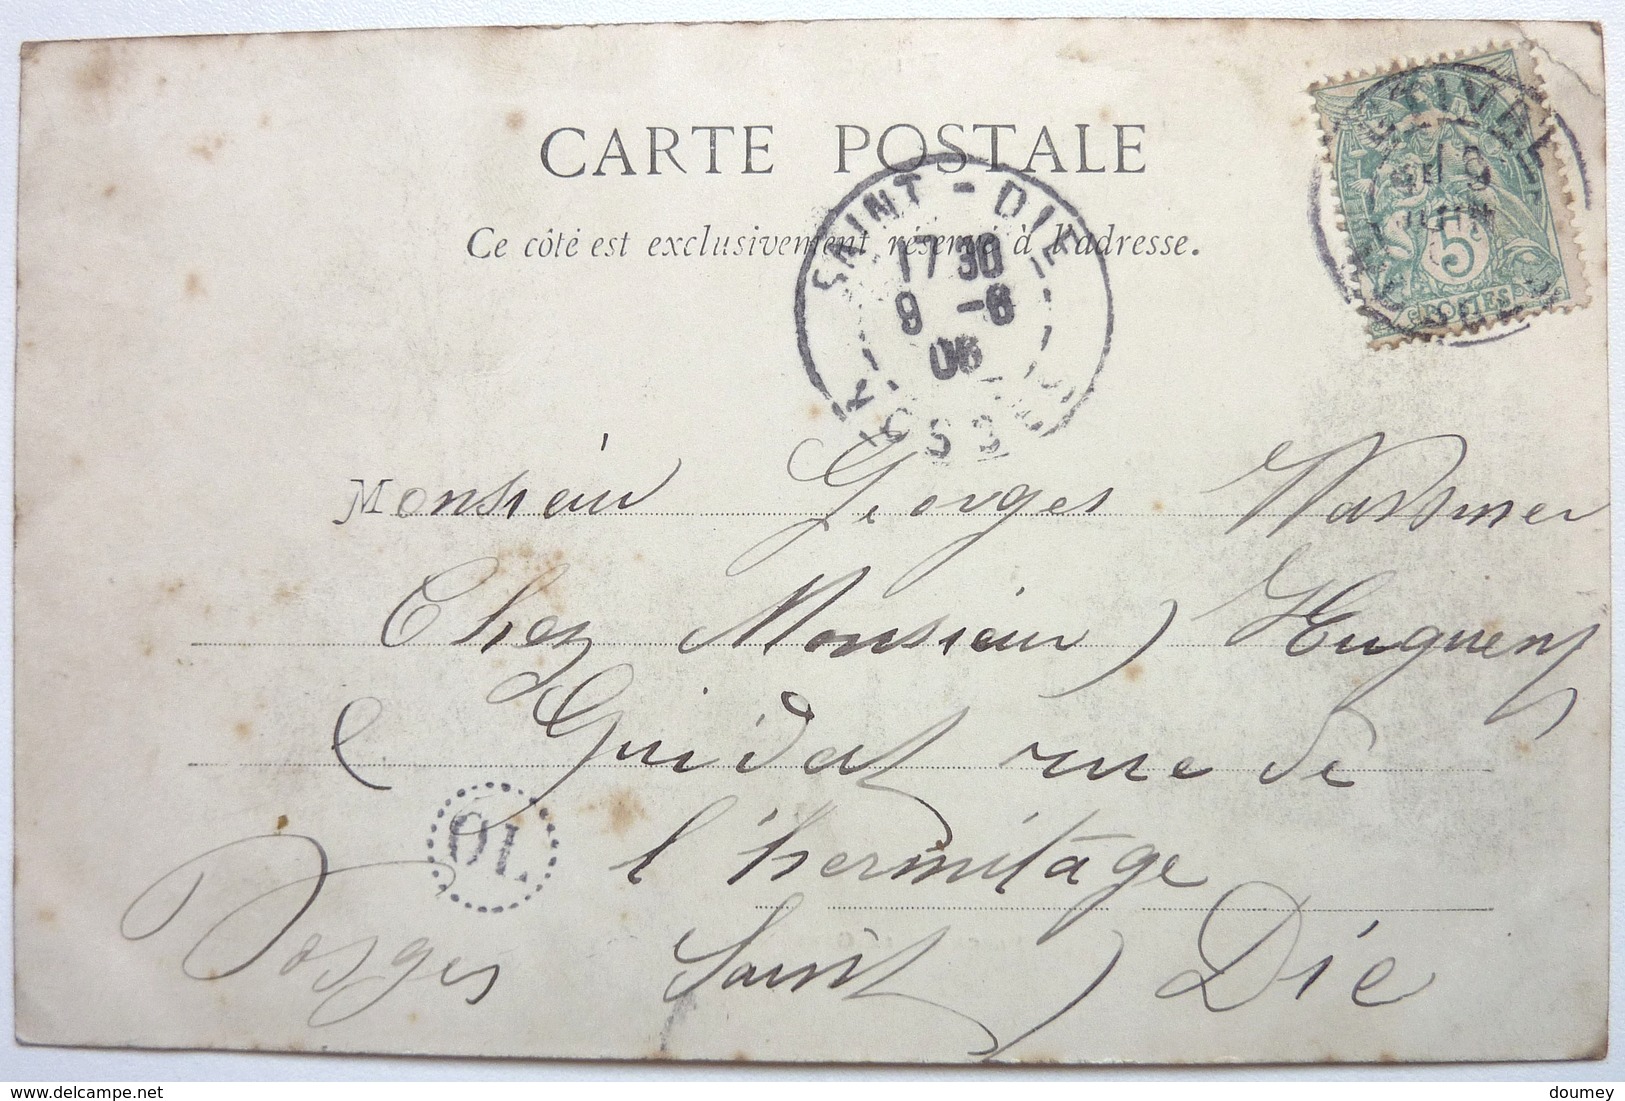 CARTE POSTALE
Ce côté est exclusivement réservé à l'adresse.
SAINT-DIÉ
17 30
9 -6
06
VOSGES
5
POSTES
Monsieur Georges Wassmer
Chez Monsieur Huguenf
Guidat rue de
l'hermitage
Saint Dié
Vosges
visitez notre site www.delcampe.net
doumey